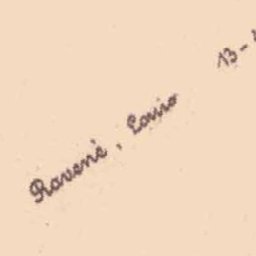 Ravené, Louis 13-